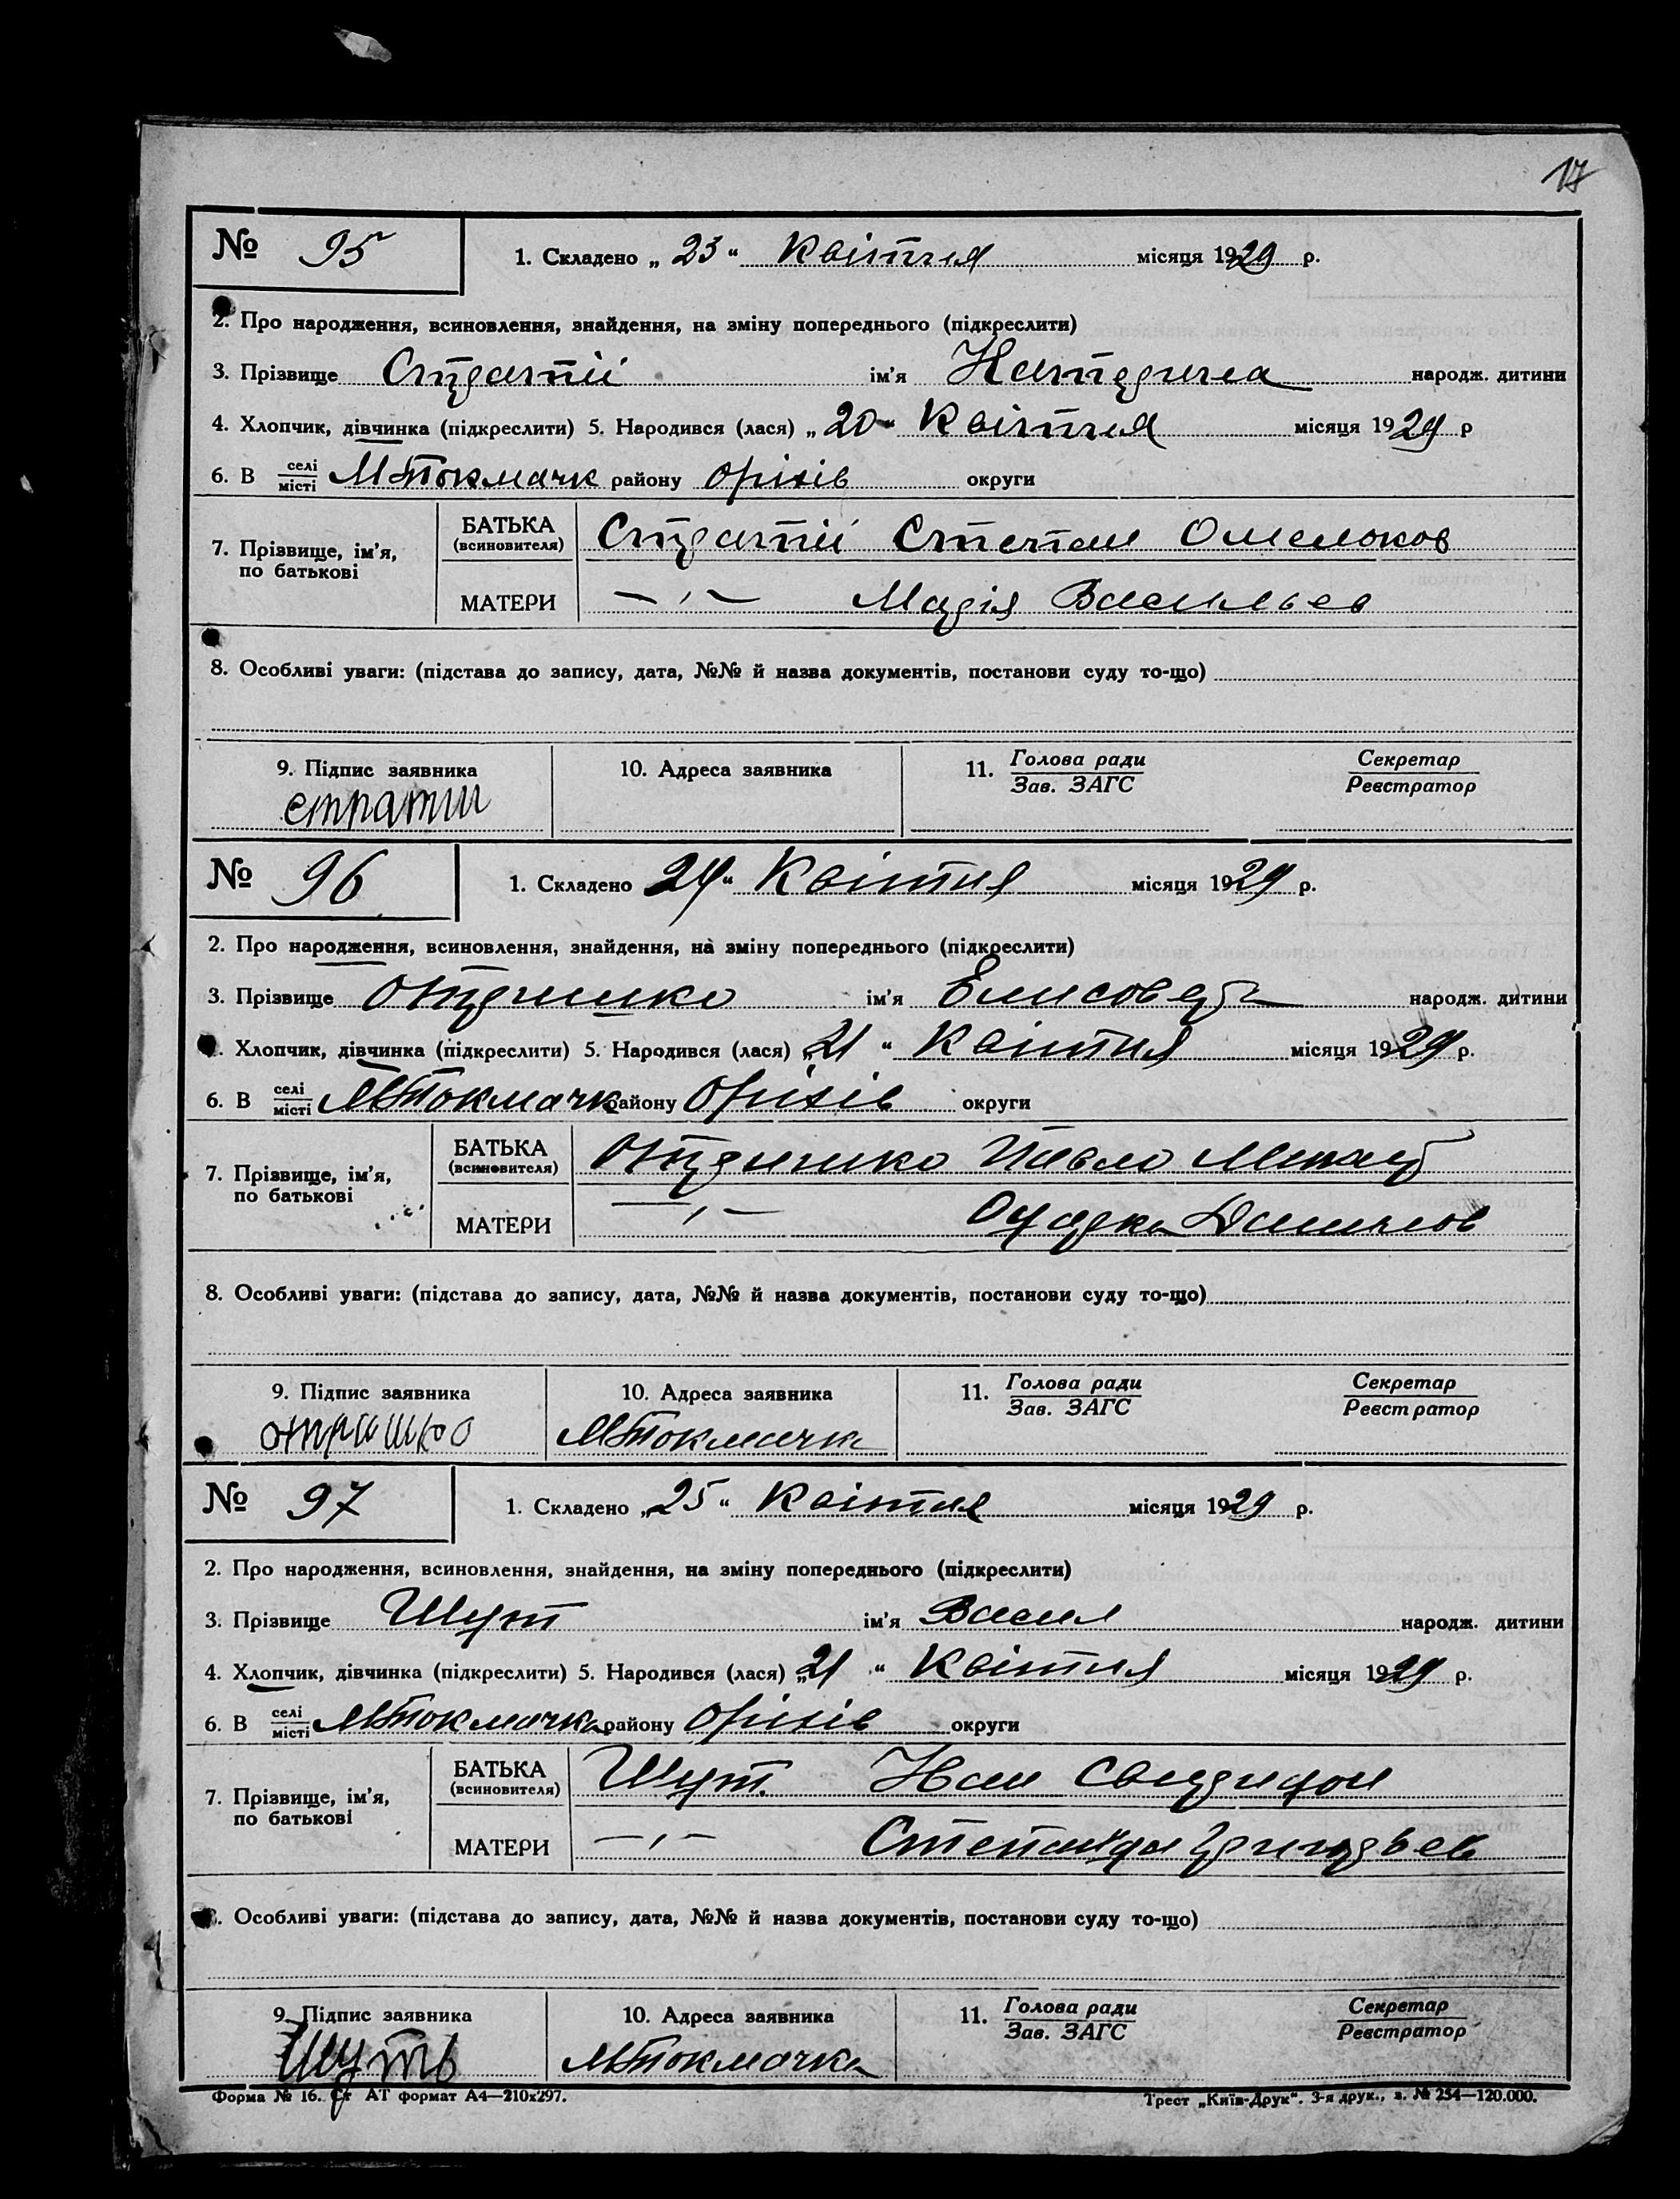 17
№ 95
1. Складено „ 23 “ Квітня місяця 1929 р.
2. Про народження, всиновлення, знайдення, на зміну попереднього (підкреслити)
3. Прізвище Стратій ім'я Катерина народж. дитини
4. Хлопчик, дівчинка (підкреслити) 5. Народився (лася) „ 20 “ Квітня місяця 1929 р
6. В селі/місті МТокмачк району Оріхів округи
7. Прізвище, ім'я, по батькові
БАТЬКА (всиновителя) Стратій Степан Омельков
МАТЕРИ —〃— Марія Васильев
8. Особливі уваги: (підстава до запису, дата, №№ й назва документів, постанови суду то-що)
9. Підпис заявника 10. Адреса заявника 11. Голова ради/Зав. ЗАГС Секретар/Реєстратор
стратии
№ 96
1. Складено 24 “ Квітня місяця 1929 р.
2. Про народження, всиновлення, знайдення, на зміну попереднього (підкреслити)
3. Прізвище Отришко ім'я народж. дитини
4. Хлопчик, дівчинка (підкреслити) 5. Народився (лася) „ 21 “ Квітня місяця 1929 р.
6. В селі/місті МТокмачк району Оріхів округи
7. Прізвище, ім'я, по батькові
БАТЬКА (всиновителя) Отришко Павло
МАТЕРИ —〃— Данилов
8. Особливі уваги: (підстава до запису, дата, №№ й назва документів, постанови суду то-що)
9. Підпис заявника 10. Адреса заявника 11. Голова ради/Зав. ЗАГС Секретар/Реєстратор
отришко МТокмачка
№ 97
1. Складено „ 25 “ Квітня місяця 1929 р.
2. Про народження, всиновлення, знайдення, на зміну попереднього (підкреслити)
3. Прізвище Шут ім'я Васил народж. дитини
4. Хлопчик, дівчинка (підкреслити) 5. Народився (лася) „ 21 “ Квітня місяця 1929 р.
6. В селі/місті МТокмачка району Оріхів округи
7. Прізвище, ім'я, по батькові
БАТЬКА (всиновителя) Шут. Іван Свиридон
МАТЕРИ —〃— Степанида Григорьев
8. Особливі уваги: (підстава до запису, дата, №№ й назва документів, постанови суду то-що)
9. Підпис заявника 10. Адреса заявника 11. Голова ради/Зав. ЗАГС Секретар/Реєстратор
Шуть МТокмачка
Форма № 16. Ст АТ формат А4—210х297. Трест „Київ-Друк“. 3-я друк., з. № 254—120.000.